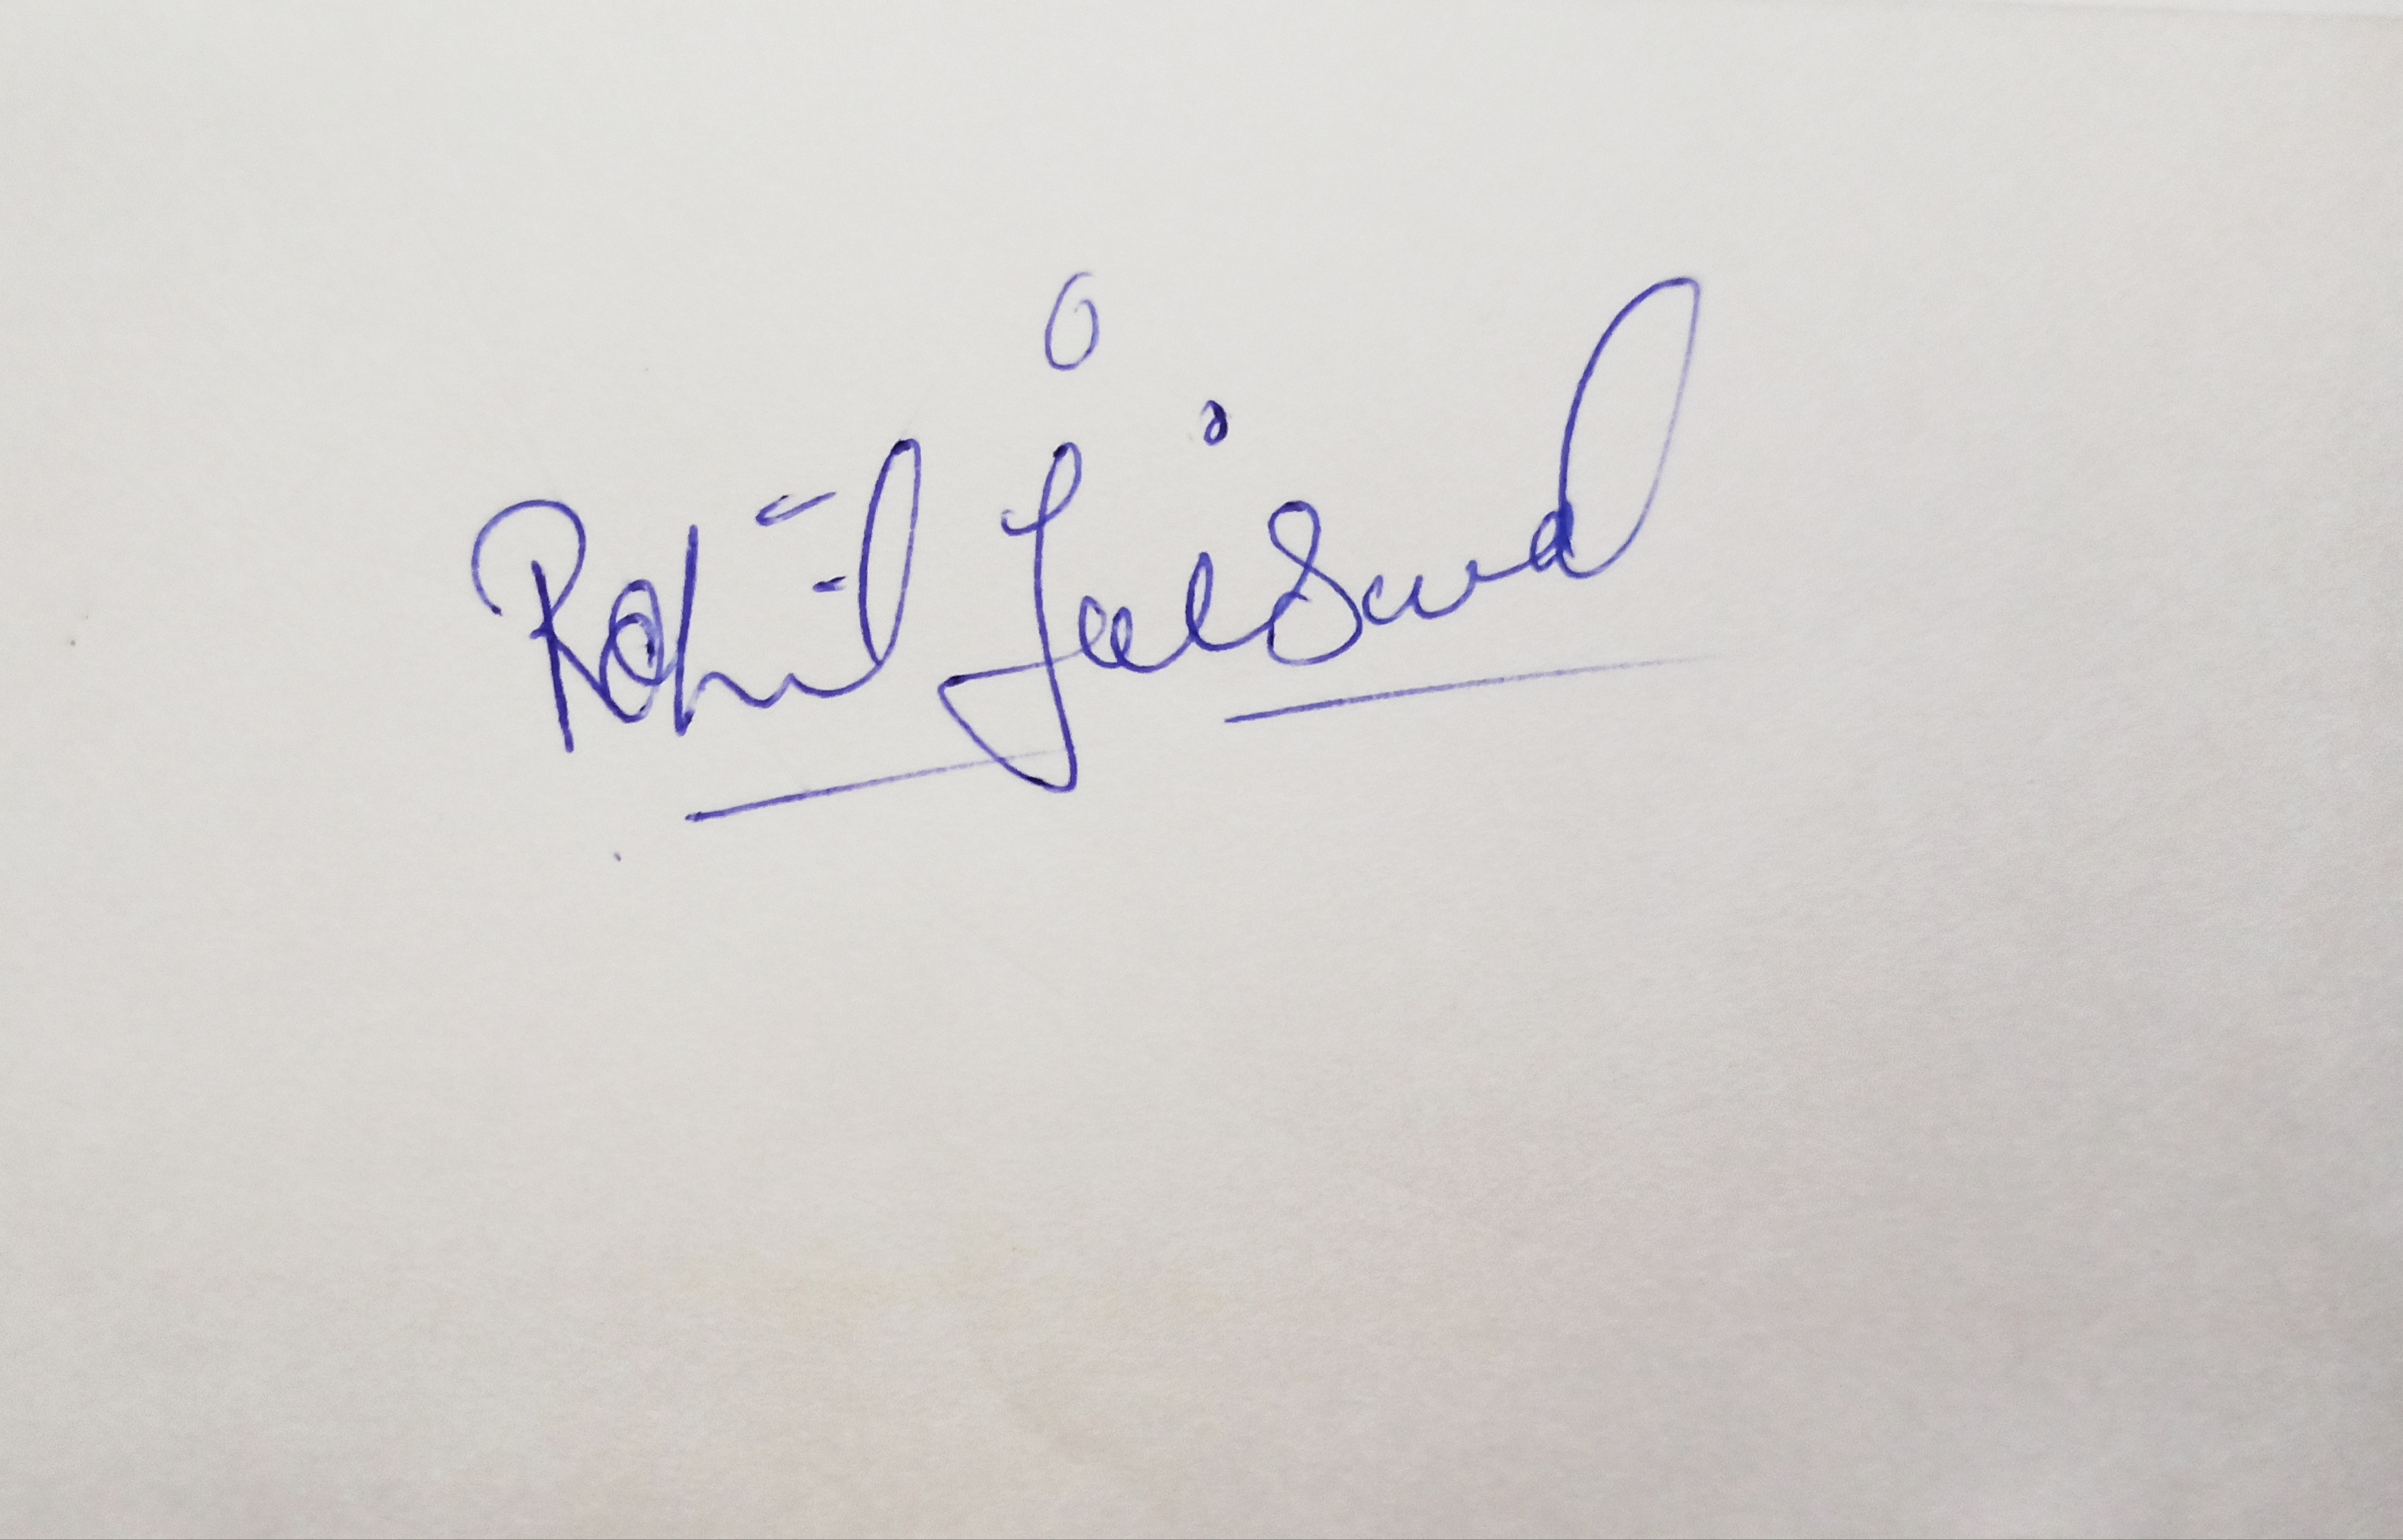 Rohit Jaiswal